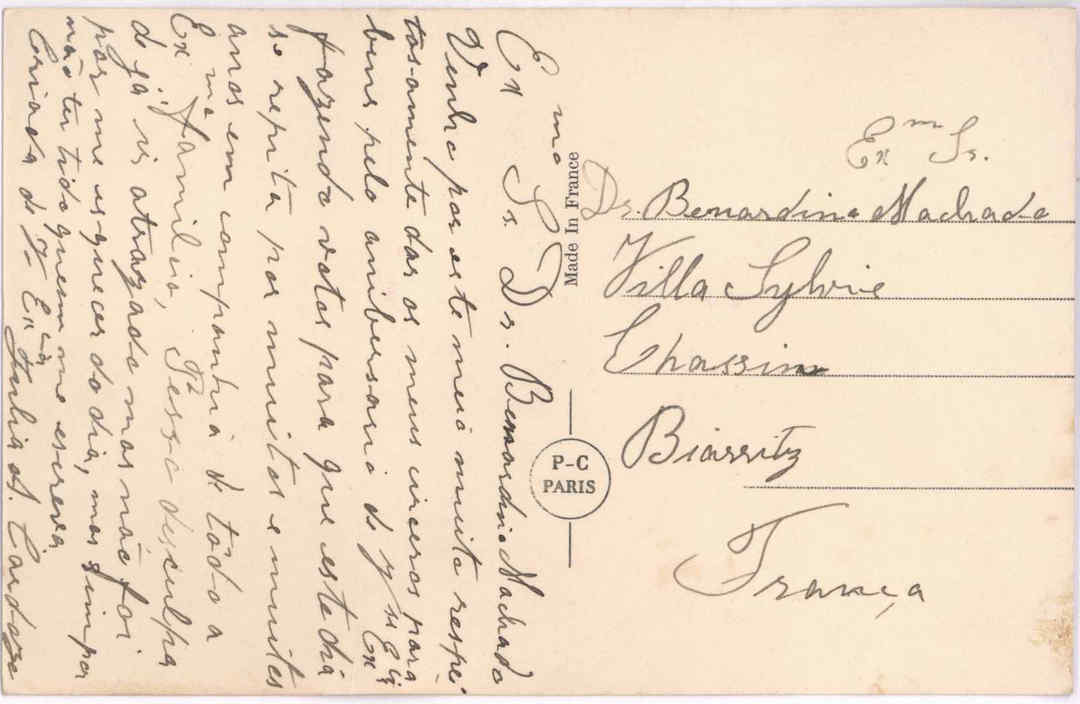 Exmo Sr. Dr. Benardino Machado
Venho por este meio muito respei-
tosamente dar os meus cinceros para
bens pelo anibersario de V. Excia
fazendo votos para que este dia
se repita por muitos e muitos
anos em companhia de tôda a
Exma familia, Pesso disculpa
de já is atrazado mas não foi
por me esquecer do dia, mas sim por
não ter tido quem me escreva
Criada de V. Excia Julia A. Cardozo
Made In France
P-C
PARIS
Exmo Sr.
Dr. Benardino Machado
Villa Sylvie
Chassin
Biarritz
França